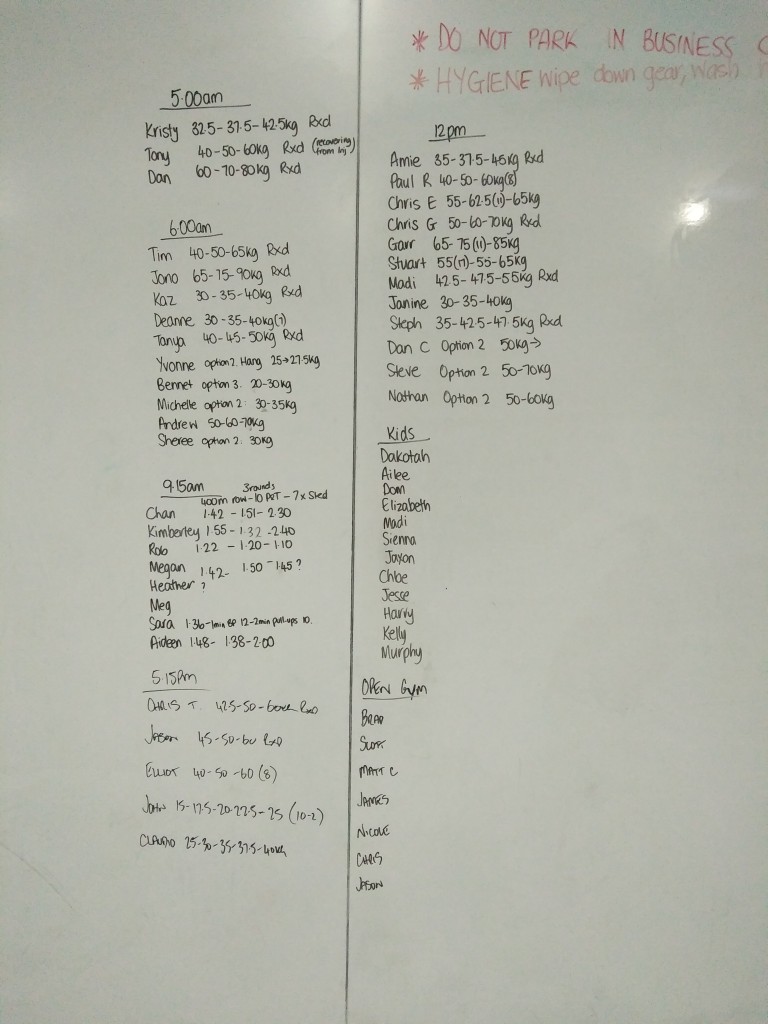 * DO NOT PARK IN BUSINESS
* HYGIENE wipe down gear, wash
5.00am
Kristy 32.5-37.5-42.5kg Rxd
Tony 40-50-60kg Rxd (recovering from inj)
Dan 60-70-80kg Rxd
6.00am
Tim 40-50-65kg Rxd
Jono 65-75-90kg Rxd
Kaz 30-35-40kg Rxd
Deanne 30-35-40kg(7)
Tanya 40-45-50kg Rxd
Yvonne option 2. Hang 25→27.5kg
Bennet option 3. 20-30kg
Michelle option 2: 30-35kg
Andrew 50-60-70kg
Sheree option 2: 30kg
9.15am 3 rounds
400m row-10 - 7x Sled
Chan 1.42 - 1.51 - 2.30
Kimberley 1.55 - 1.32 - 2.40
Rob 1.22 - 1.20 - 1.10
Megan 1.42 - 1.50 - 1.45?
Heather ?
Meg
Sara 1.36-1min BP 12-2min pull-ups 10.
Aideen 1.48- 1.38-2.00
5.15pm
CHRIS T. 42.5-50-60kg RxD
JASON 45-50-60 RxD
ELLIOT 40-50-60 (8)
JOHN 15-17.5-20-22.5-25 (10-2)
CLAUDIO 25-30-35-37.5-40kg
12pm
Amie 35-37.5-45kg Rxd
Paul R 40-50-60kg(8)
Chris E 55-62.5(11)-65kg
Chris G 50-60-70kg Rxd
Garr 65-75(11)-85kg
Stuart 55(17)-55-65kg
Madi 42.5-47.5-55kg Rxd
Janine 30-35-40kg
Steph 35-42.5-47.5kg Rxd
Dan C Option 2 50kg→
Steve Option 2 50-70kg
Nathan Option 2 50-60kg
Kids
Dakotah
Ailee
Dom
Elizabeth
Madi
Sienna
Jaxon
Chloe
Jesse
Harvy
Kelly
Murphy
OPEN Gym
BRAD
SCOTT
MATT C
JAMES
NICOLE
CHRIS
JASON